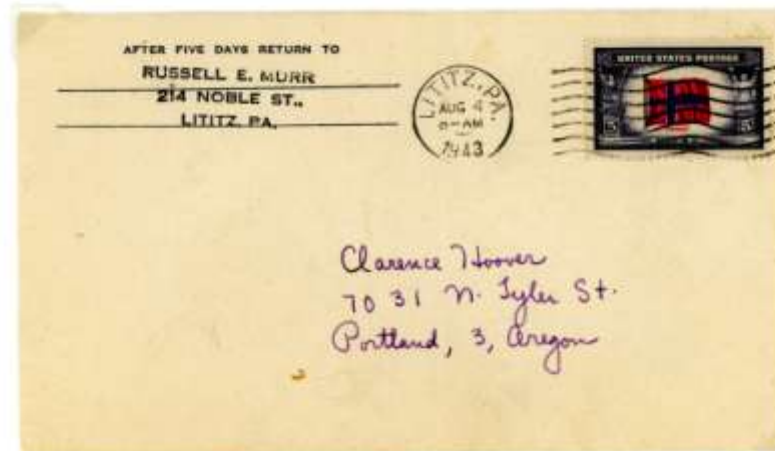 AFTER FIVE DAYS RETURN TO
RUSSELL E. MURR
214 NOBLE ST.,
LITITZ, PA.
LITITZ, PA.
AUG 4
8-AM
1943
UNITED STATES POSTAGE
5 5
Clarence Hoover
7031 N. Tyler St.
Portland, 3, Oregon